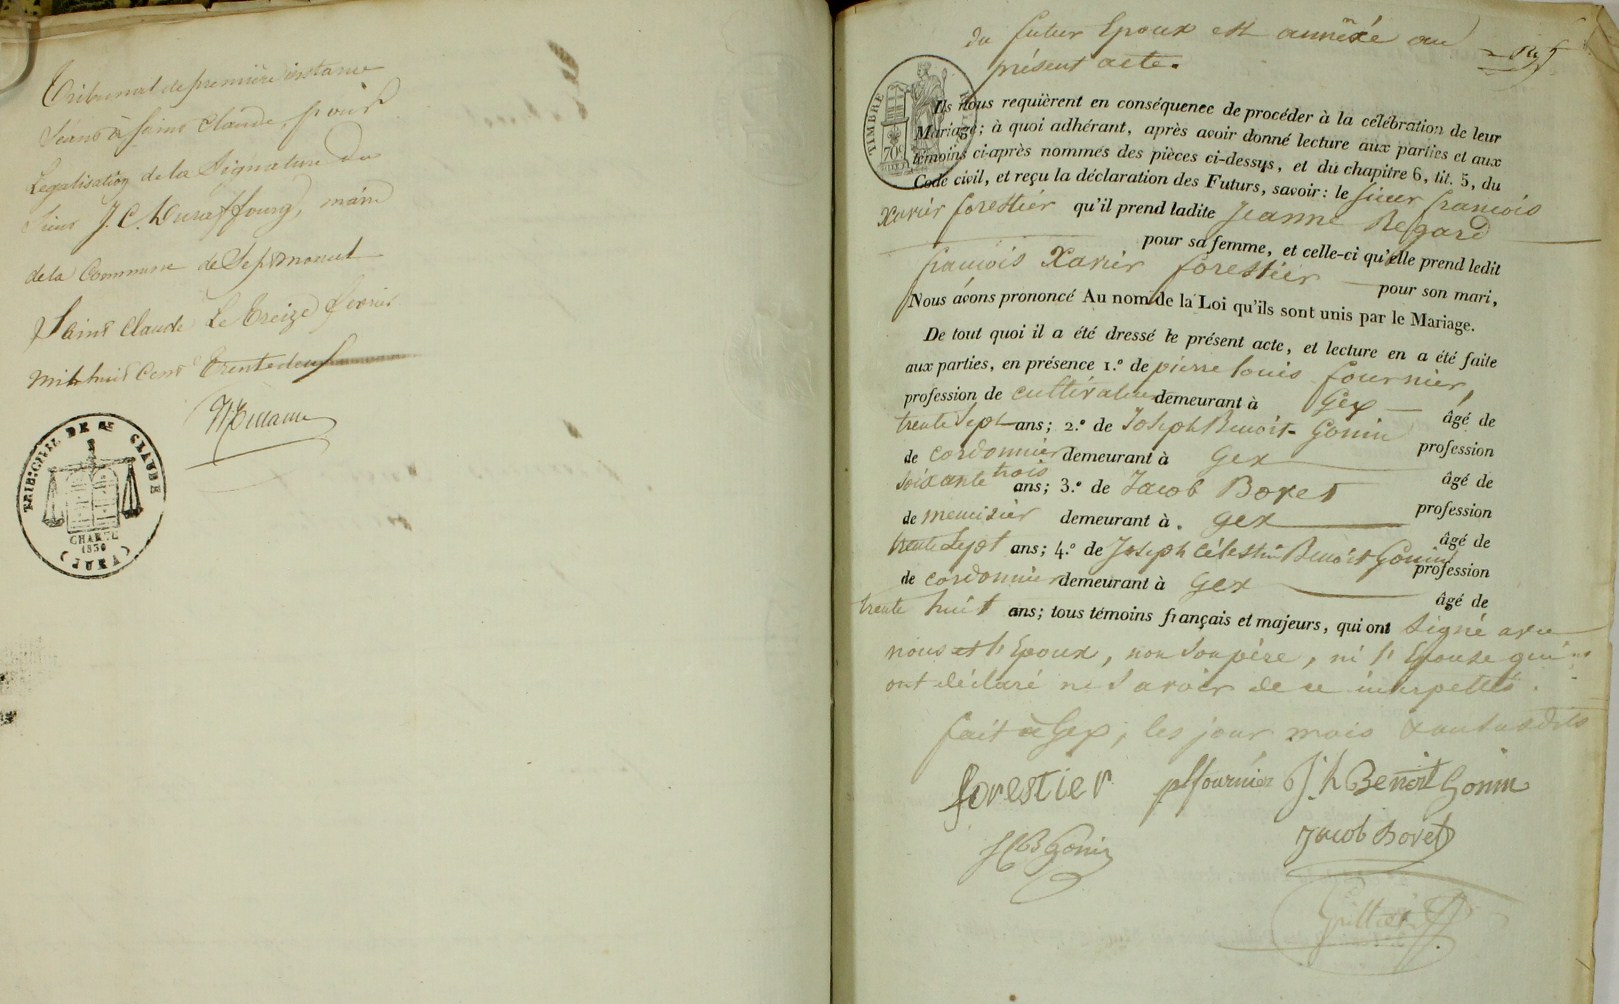 Tribunal de première instance
Séant à Saint Claude, pour
Legalisation de la Signature du
Sieur J. C. Duraffourg, maire
de la Commune de Septmoncel
Saint Claude Le treize fevrier
mil huit Cent Trente deux
TRIBUNAL DE St CLAUDE
CHARTE
1830
(JURA)
du futur Epoux est annéxé au
présent acte.
TIMBRE
70c
Ils nous requièrent en conséquence de procéder à la célébration de leur
Mariage; à quoi adhérant, après avoir donné lecture aux parties et aux
témoins ci-après nommés des pièces ci-dessus, et du chapitre 6, tit. 5, du
Code civil, et reçu la déclaration des Futurs, savoir: le sieur françois
Xavier forestier qu'il prend ladite Jeanne Regard
pour sa femme, et celle-ci qu'elle prend ledit
françois Xavier forestier pour son mari,
Nous avons prononcé Au nom de la Loi qu'ils sont unis par le Mariage.
De tout quoi il a été dressé le présent acte, et lecture en a été faite
aux parties, en présence 1.º de pierre louis fournier,
profession de cultivateur demeurant à Gex âgé de
trente sept ans; 2.º de Joseph Benoit-Gonin profession
de cordonnier demeurant à Gex âgé de
soixante trois ans; 3.º de Jacob Boret profession
de menuisier demeurant à Gex âgé de
trente sept ans; 4.º de Joseph Célestin Benoit Gonin profession
de cordonnier demeurant à Gex âgé de
trente huit ans; tous témoins français et majeurs, qui ont signé avec
nous et l'Epoux, non son père, ni l'Epouse qui
ont déclaré ne savoir de ce interpellés.
fait à Gex, les jour mois & an susdits
forestier plfournier J.h Benoit Gonin
JCB Gonin Jacob Boret